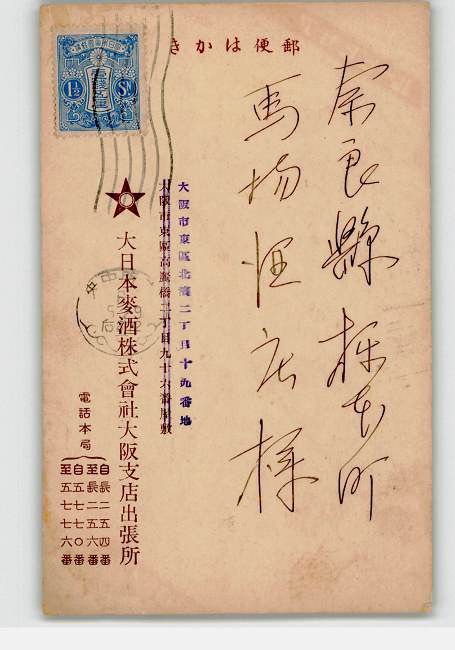 郵便はかき
奈良縣櫟本町
馬場恒店様
大阪市東區北濱二丁目十九番地
大阪市東區高麗橋二丁目九十六番屋敷
大日本麥酒株式會社大阪支店出張所
電話本局
自長二五四番
至長二五六番
自五七七〇番
至五七七六番
1½ Sn